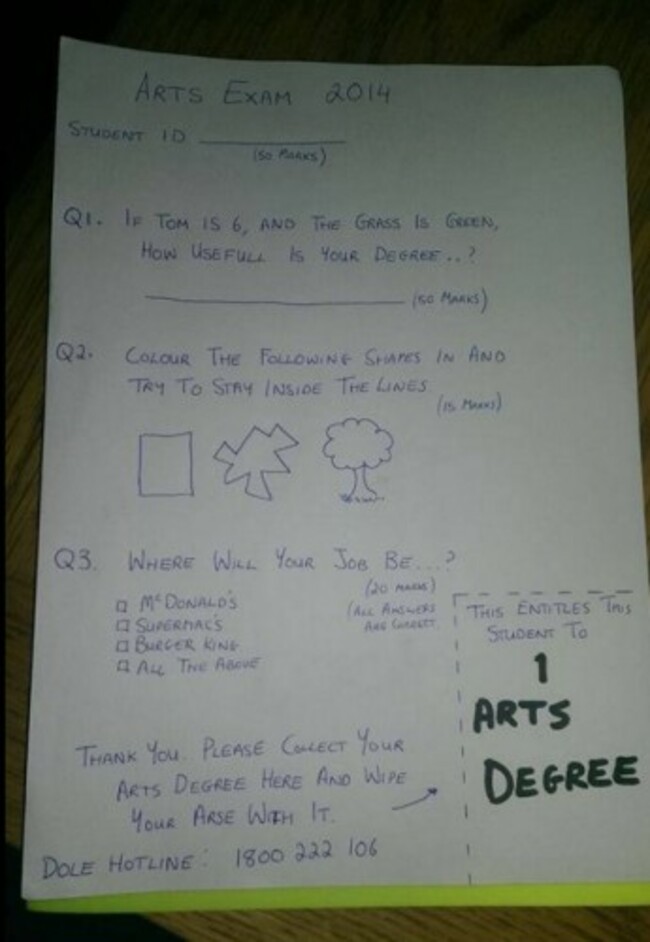 ARTS EXAM 2014
STUDENT ID
(50 MARKS)
Q1. IF TOM IS 6, AND THE GRASS IS GREEN,
HOW USEFULL IS YOUR DEGREE..?
(50 MARKS)
Q2. COLOUR THE FOLLOWING SHAPES IN AND
TRY TO STAY INSIDE THE LINES
(15 MARKS)
Q3. WHERE WILL YOUR JOB BE...?
(20 MARKS)
(ALL ANSWERS
ARE CORRECT
McDONALD'S
SUPERMAC'S
BURGER KING
ALL THE ABOVE
THIS ENTITLES THIS
STUDENT TO
1
ARTS
DEGREE
THANK YOU. PLEASE COLLECT YOUR
ARTS DEGREE HERE AND WIPE
YOUR ARSE WITH IT.
DOLE HOTLINE: 1800 222 106